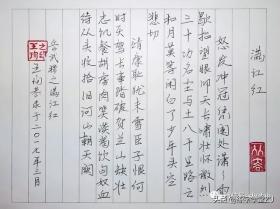 满江红
怒发冲冠凭阑处潇潇雨
歇抬望眼仰天长啸壮怀激烈
三十功名尘与土八千里路云
和月莫等闲白了少年头空
悲切
靖康耻犹未雪臣子恨何
时灭驾长车踏破贺兰山缺壮
志饥餐胡虏肉笑谈渴饮匈奴血
待从头收拾旧河山朝天阙
岳武穆之满江红
恭录于二〇一九年三月